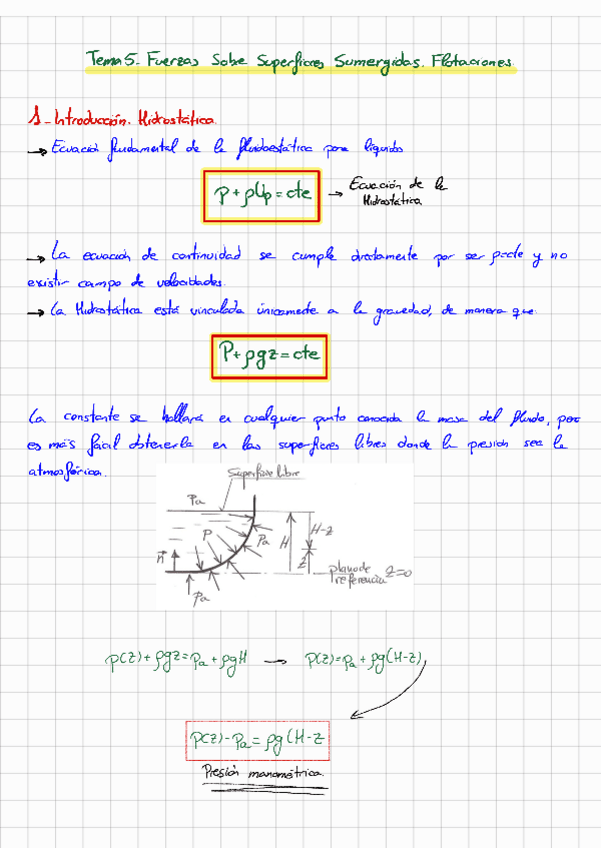 Tema 5.- Fuerzas Sobre Superficies Sumergidas. Flotaciones.
1.- Introducción. Hidrostática.
→ Ecuación fundamental de la fluidoestática para líquidos
P + ρUp = cte → Ecuación de la
Hidrostática
→ La ecuación de continuidad se cumple directamente por ser ρ=cte y no
existir campo de velocidades.
→ La Hidrostática está vinculada únicamente a la gravedad, de manera que:
P + ρgz = cte
La constante se hallará en cualquier punto conocida la masa del fluido, pero
es más fácil obtenerla en las superficies libres donde la presión sea la
atmosférica.
Superficie libre
Pa
P
Pa
H
H-z
z
n
Pa
plano de
referencia z=0
p(z) + ρgz = Pa + ρgH → p(z) = Pa + ρg(H-z)
p(z) - Pa = ρg(H-z
Presión manométrica